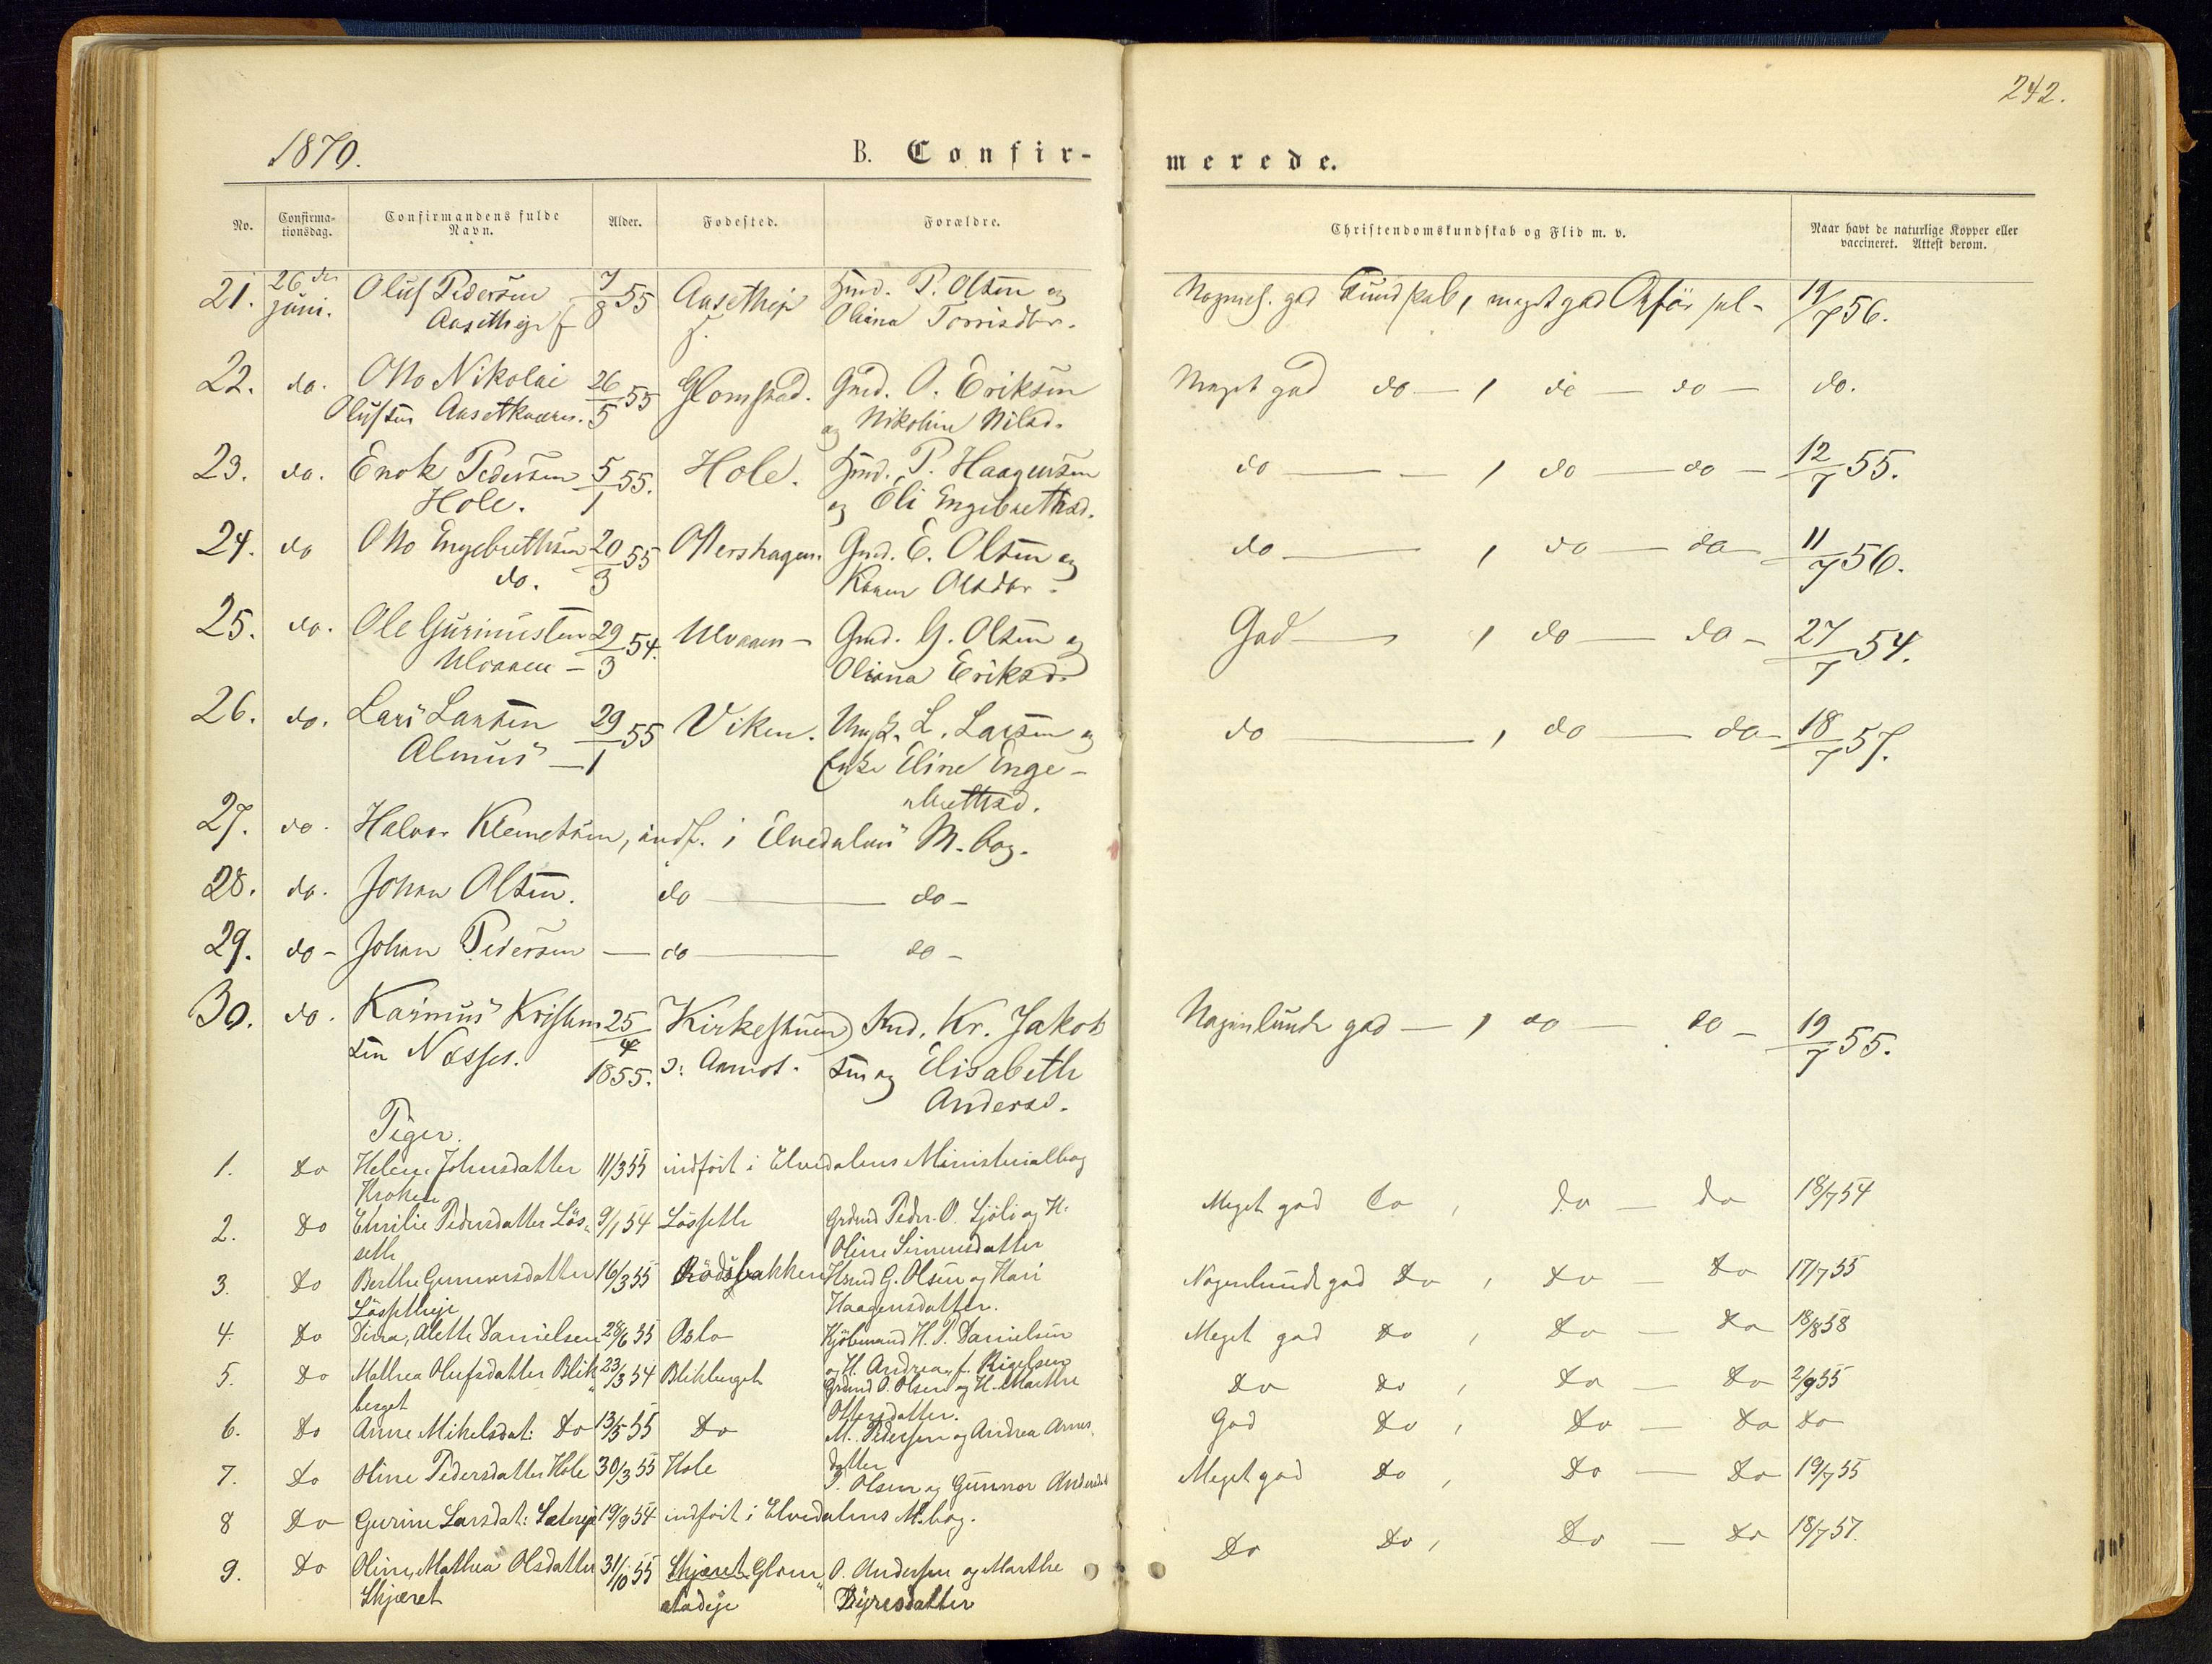 242.
1870.
B. Confir-
merede.
No.
Confirma-
tionsdag.
Confirmandens fulde
Navn.
Alder.
Fodested.
Forældre.
Christendomskundskab og Flid m. v.
Naar havt de naturlige Kopper eller
vaccineret. Attest derom.
21. 26de Oluf Pedersen 7/8 55 Aasetheje Hmd. P. Olsen og
juni. Aasetheje Oliana Torrisdtr.
god Kundskab, meget god 19/7 56.
22. do. Otto Nikolai 26/5 55 Glomstad. Gmd. O. Eriksen
Olufsen Aasetkværn. og Nikoline Nilsd.
Meget god do — , do — do — do.
23. do. Enok Pedersen 5/1 55. Hole. Hmd. P. Haagensen
Hole. og Eli Engebrethsd.
do — , do — do — 12/7 55.
24. do Otto Engebrethsen 20/3 55 Ottershagen. Gmd. E. Olsen og
do. Karen Olsdtr.
do — , do — do — 11/7 56.
25. do. Ole Gunniussen 29/3 54. Ulvaaen — Gmd. G. Olsen og
Ulvaaen — Oliana Eriksd.
God — , do — do — 27/7 54.
26. do. Lars Larsen 29/1 55 Viken. Ungk. L. Larsen og
Almus — Enke Eline Enge-
brethsd.
do — , do — do — 18/7 57.
27. do. Halvor Klemetsen, indf. i Elvedalens M. bog.
28. do. Johan Olsen. do — do —
29. do — Johan Pedersen — do — do —
30. do. Kasimus Kristian 25/4 Kirkestuen Hmd. Kr. Jakob
sen Næsset. 1855. i Aamot. sen og Elisabeth
Andersd.
Nogenlunde god — , do — do — 19/7 55.
Piger.
1. Do Helene Johnsdatter 11/3 55 indført i Elvedalens Ministerialbog
Kroken
2. Do Emilie Pedersdatter Lös- 9/1 54 Lösseth Grdmd Peder O. Sjöli og H.
seth Oline Simensdatter
Meget god Do , Do — Do 18/7 54
3. Do Berthe Gunnersdatter 16/3 55 Rödsbakken Hsmd G. Olsen og Kari
Lössetheje Haagensdatter.
Nogenlunde god Do , Do — Do 17/7 55
4. Do Dina, Alette Danielsen 28/6 55 Oslo Kjöbmand H. P. Danielsen
og H. Andrea, f. Rigelsen
Meget god Do , Do — Do 18/8 58
5. Do Mathea Olufsdatter Blik 23/3 54 Blikberget Grdmd O. Olsen og H. Marthe
berget Ottersdatter.
Do Do , Do — Do 2/9 55
6. Do Anne Mikelsdat: Do 13/5 55 Do M. Pedersen og Andrea Arnes.
datter
God Do , Do — Do Do
7. Do Oline Pedersdatter Hole 30/3 55 Hole P. Olsen og Gunnor Andersdat
Meget god Do , Do — Do 19/7 55
8 Do Gurine Larsdat: Sætereje 19/9 54 indført i Elvedalens M.bog.
9. Do Oline, Mathea Olsdatter 31/10 55 Skjæret Glom O. Andersen og Marthe
Skjæret stadeje Byresdatter
Do Do , Do — Do 18/7 57.